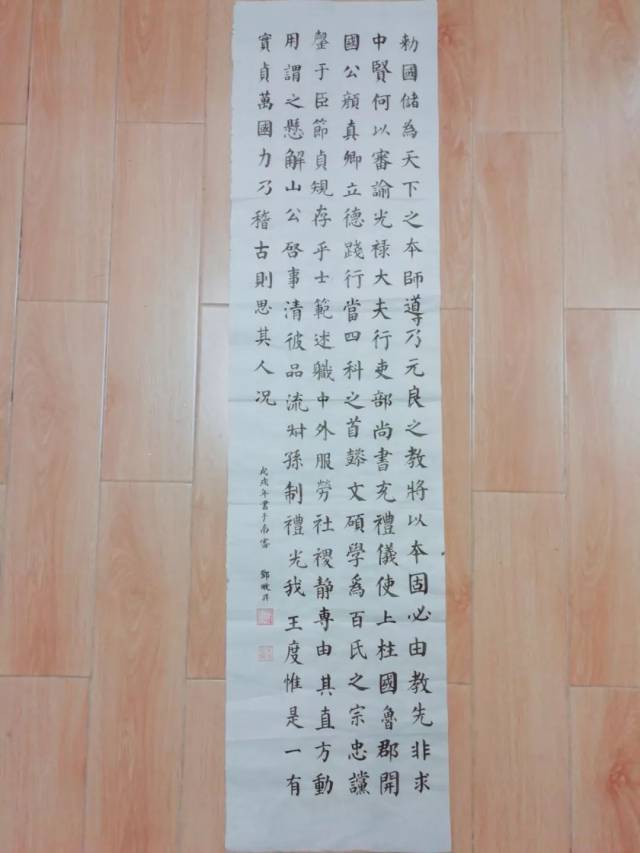 勅國儲為天下之本師導乃元良之教將以本固必由教先非求
中賢何以審諭光禄大夫行吏部尚書充禮儀使上柱國魯郡開
國公顔真卿立德踐行當四科之首懿文碩學為百氏之宗忠讜
罄于臣節貞規存乎士範述職中外服勞社稷静專由其直方動
用謂之懸解山公啓事清彼品流叔孫制禮光我王度惟是一有
實貞萬國力乃稽古則思其人况
戊戌年書于南寧 鄧